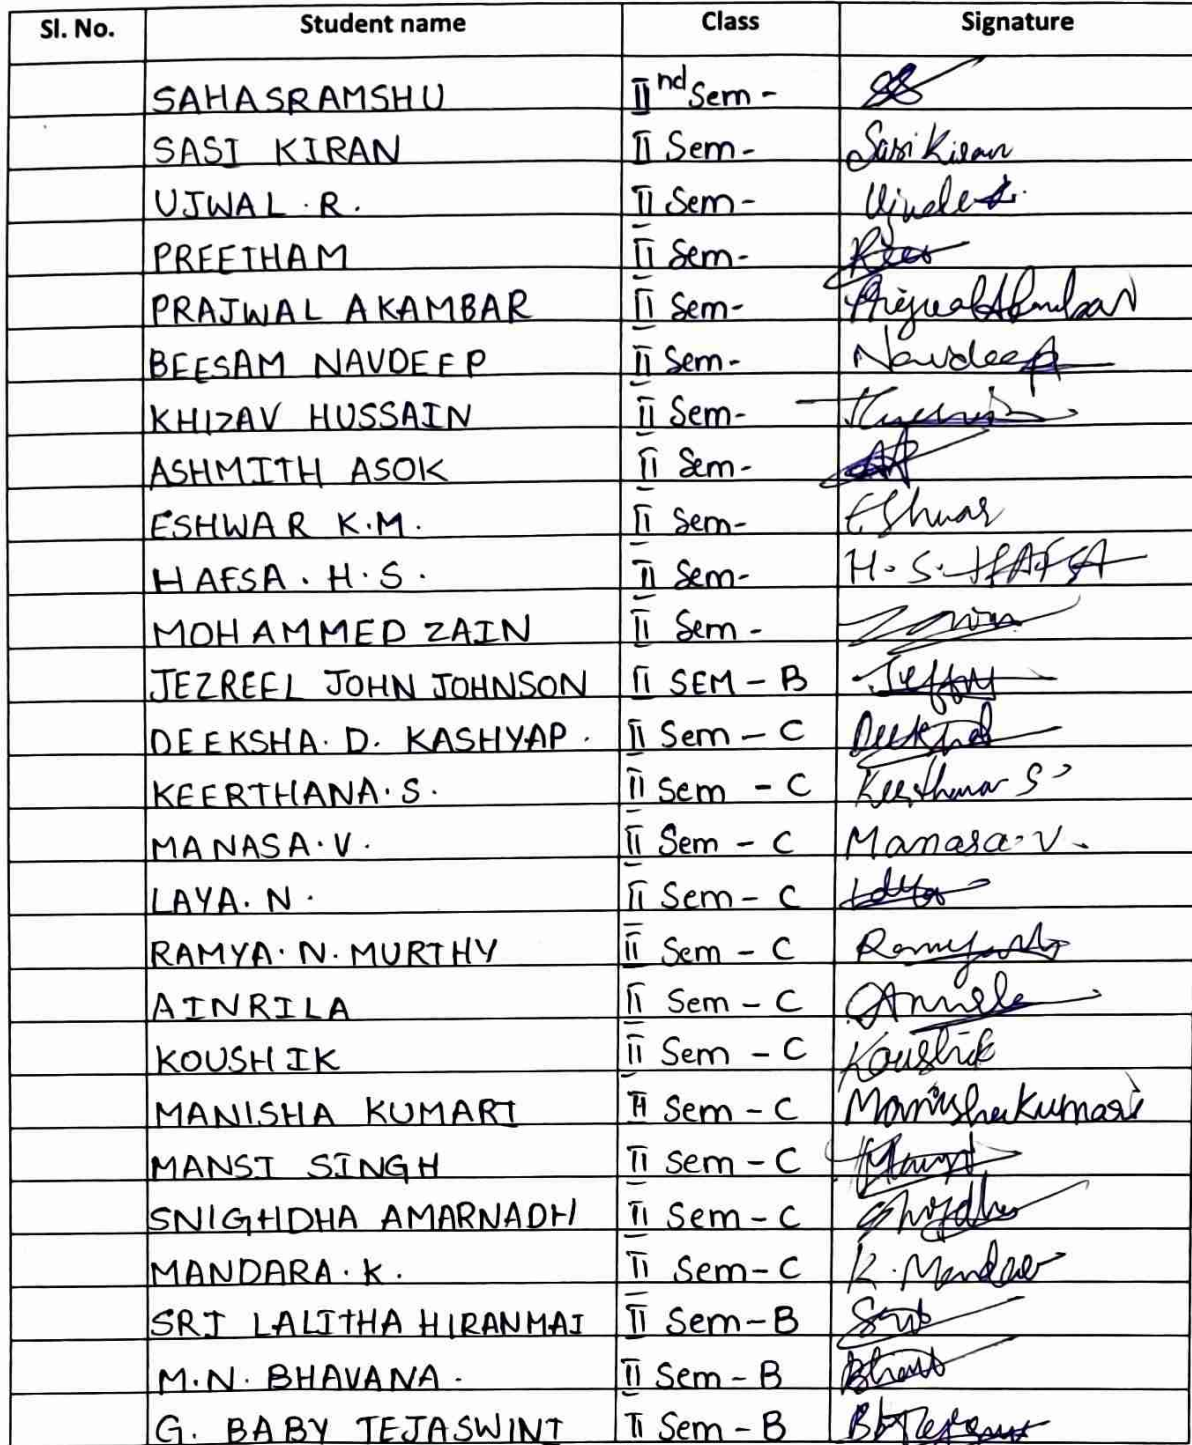 Sl. No. Student name Class Signature
SAHASRAMSHU IInd Sem -
SASI KIRAN II Sem - Sasi Kiran
UJWAL . R. II Sem -
PREETHAM II Sem -
PRAJWAL AKAMBAR II Sem -
BEESAM NAVDEEP II Sem - Navdeep
KHIZAV HUSSAIN II Sem -
ASHMITH ASOK II Sem -
ESHWAR K.M. II Sem - Eshwar
HAFSA . H . S . II Sem - H . S . HAFSA
MOHAMMED ZAIN II Sem - Zain
JEZREEL JOHN JOHNSON II SEM - B
DEEKSHA. D. KASHYAP . II Sem - C
KEERTHANA . S . II Sem - C Keerthana S
MANASA . V . II Sem - C Manasa . V .
LAYA . N . II Sem - C
RAMYA . N . MURTHY II Sem - C
AINRILA II Sem - C
KOUSHIK II Sem - C Koushik
MANISHA KUMARI II Sem - C Manisha Kumari
MANSI SINGH II Sem - C
SNIGHDHA AMARNADH II Sem - C
MANDARA . K . II Sem - C K . Mandara
SRI LALITHA HIRANMAI II Sem - B
M . N . BHAVANA . II Sem - B
G . BABY TEJASWINI II Sem - B